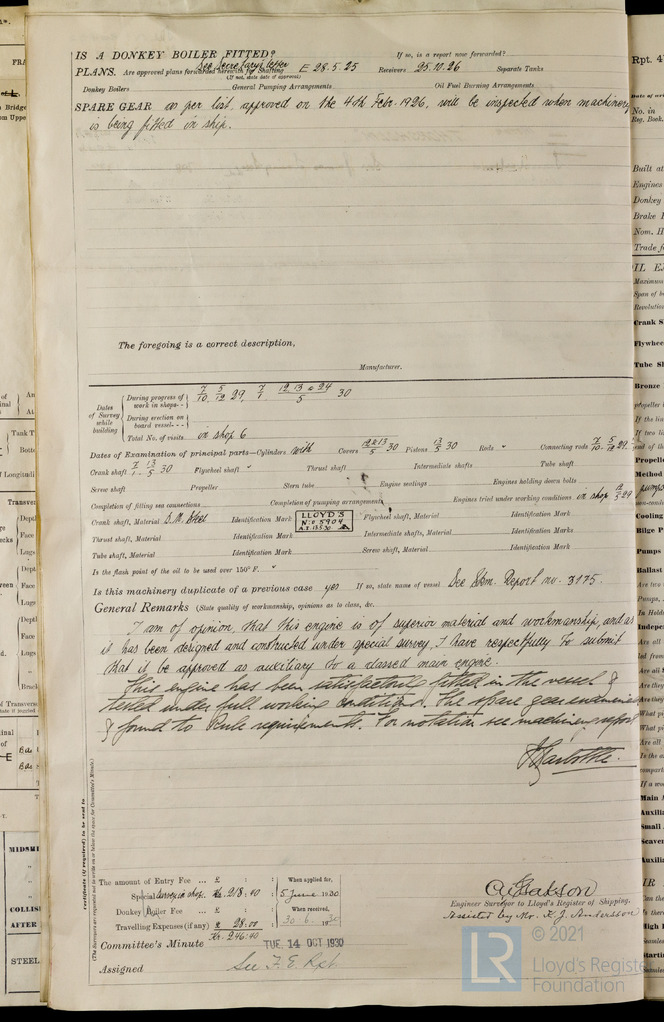 IS A DONKEY BOILER FITTED? If so, is a report now forwarded?
See Secretary's letter
PLANS. Are approved plans forwarded herewith for Shafting E 28.5.25 Receivers 25.10.26 Separate Tanks
(If not, state date of approval)
Donkey Boilers General Pumping Arrangements Oil Fuel Burning Arrangements
SPARE GEAR as per list, approved on the 4th Febr. 1926, will be inspected when machinery
is being fitted in ship.
The foregoing is a correct description,
Manufacturer.
Dates of Survey while building
During progress of work in shops-- 7/10, 5/12 29, 7/1 12, 13 & 24/5 30
During erection on board vessel---
Total No. of visits in shop 6
Dates of Examination of principal parts—Cylinders with Covers 12 & 13/5 30 Pistons 13/5 30 Rods " Connecting rods 7/10 5/12 29
Crank shaft 7/1 13/5 30 Flywheel shaft " Thrust shaft Intermediate shafts Tube shaft
Screw shaft Propeller Stern tube Engine seatings Engines holding down bolts
Completion of fitting sea connections Completion of pumping arrangements Engines tried under working conditions in shop
Crank shaft, Material S.M. Steel Identification Mark LLOYD'S Nº 5904 Flywheel shaft, Material Identification Mark
Thrust shaft, Material Identification Mark Intermediate shafts, Material Identification Mark
Tube shaft, Material Identification Mark Screw shaft, Material Identification Mark
Is the flash point of the oil to be used over 150° F. "
Is this machinery duplicate of a previous case yes If so, state name of vessel See Stm. Report no. 3175.
General Remarks (State quality of workmanship, opinions as to class, &c.
I am of opinion, that this engine is of superior material and workmanship, and as
it has been designed and contructed under special survey, I have respectfully to submit
that it be approved as auxiliary to a classed main engine.
This engine has been satisfactorily fitted in the vessel &
tested under full working conditions. The spare gear examined
& found to Rule requirements. For notation see machinery report
Certificate (if required) to be sent to
(The Surveyors are requested not to write on or below the space for Committee's Minute.)
The amount of Entry Fee ... £ : : When applied for,
Special Survey in shop. Kr. 218:40 : 5 June 1930
Donkey Boiler Fee ... £ : : When received,
Travelling Expenses (if any) £ 28:00 : 30.6.1930
Kr. 246:40
Engineer Surveyor to Lloyd's Register of Shipping.
Assisted by Mr. K. J. Andersson
Committee's Minute TUE. 14 OCT 1930
Assigned See F. E. Rpt.
© 2021
Lloyd's Register
Foundation
LR